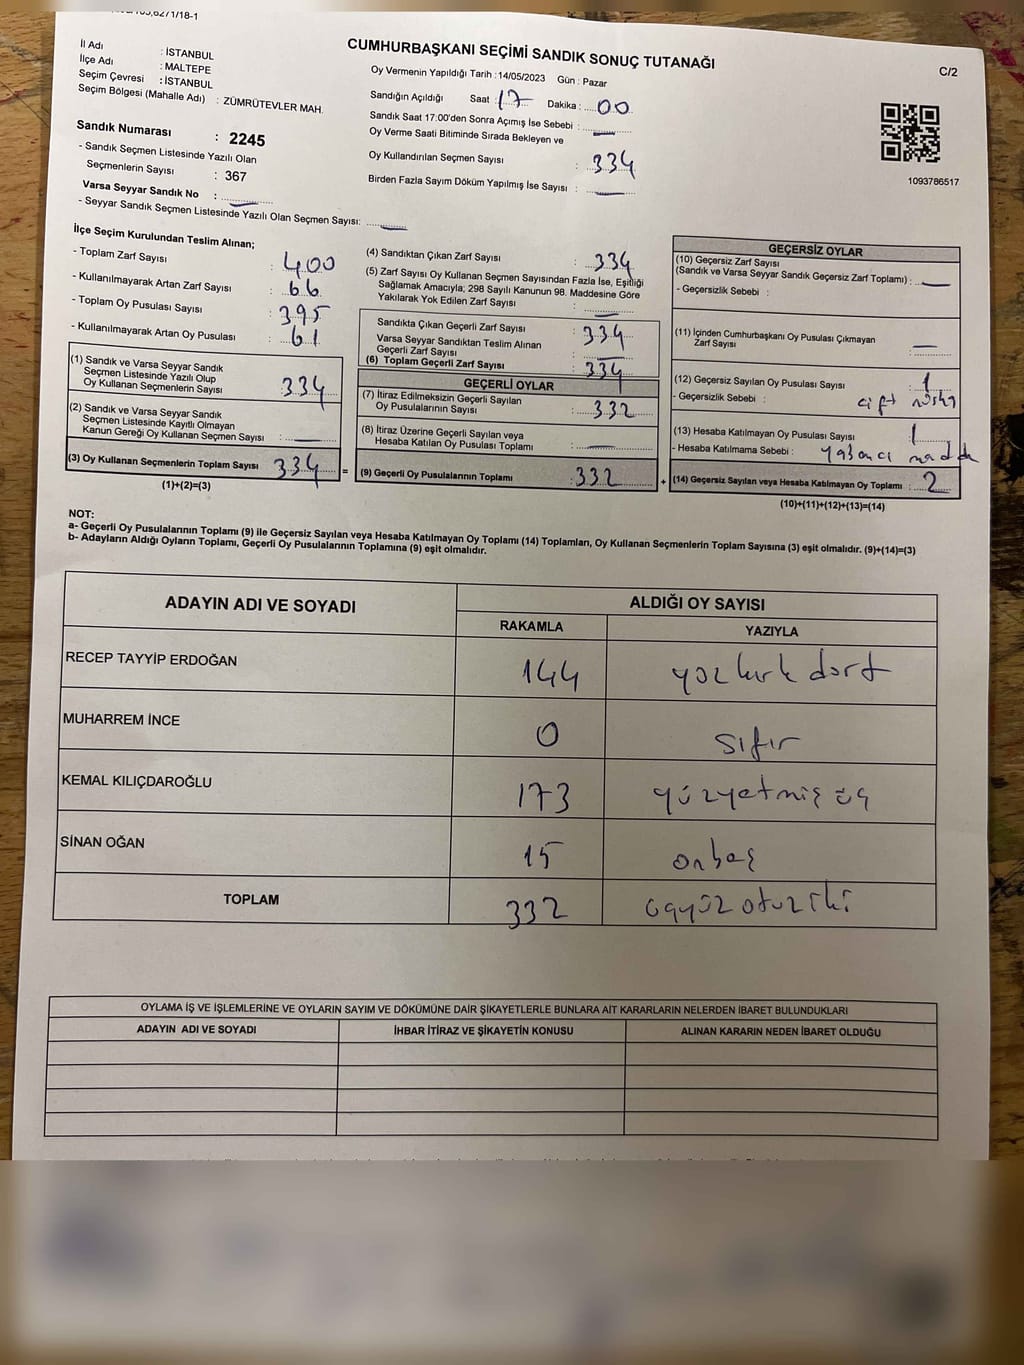 CUMHURBAŞKANI SEÇİMİ SANDIK SONUÇ TUTANAĞI
C/2
İl Adı : İSTANBUL
İlçe Adı : MALTEPE
Seçim Çevresi : İSTANBUL
Seçim Bölgesi (Mahalle Adı) : ZÜMRÜTEVLER MAH.
Sandık Numarası : 2245
- Sandık Seçmen Listesinde Yazılı Olan
Seçmenlerin Sayısı : 367
Varsa Seyyar Sandık No :
- Seyyar Sandık Seçmen Listesinde Yazılı Olan Seçmen Sayısı:
Oy Vermenin Yapıldığı Tarih : 14/05/2023 Gün : Pazar
Sandığın Açıldığı Saat : 17 Dakika : 00
Sandık Saat 17:00'den Sonra Açımış İse Sebebi :
Oy Verme Saati Bitiminde Sırada Bekleyen ve
Oy Kullandırılan Seçmen Sayısı : 334
Birden Fazla Sayım Döküm Yapılmış İse Sayısı :
1093786517
İlçe Seçim Kurulundan Teslim Alınan;
- Toplam Zarf Sayısı : 400
- Kullanılmayarak Artan Zarf Sayısı : 66
- Toplam Oy Pusulası Sayısı : 395
- Kullanılmayarak Artan Oy Pusulası : 61
(1) Sandık ve Varsa Seyyar Sandık
Seçmen Listesinde Yazılı Olup
Oy Kullanan Seçmenlerin Sayısı : 334
(2) Sandık ve Varsa Seyyar Sandık
Seçmen Listesinde Kayıtlı Olmayan
Kanun Gereği Oy Kullanan Seçmen Sayısı :
(3) Oy Kullanan Seçmenlerin Toplam Sayısı : 334 =
(1)+(2)=(3)
(4) Sandıktan Çıkan Zarf Sayısı : 334
(5) Zarf Sayısı Oy Kullanan Seçmen Sayısından Fazla İse, Eşitliği
Sağlamak Amacıyla; 298 Sayılı Kanunun 98. Maddesine Göre
Yakılarak Yok Edilen Zarf Sayısı :
Sandıkta Çıkan Geçerli Zarf Sayısı : 334
Varsa Seyyar Sandıktan Teslim Alınan
Geçerli Zarf Sayısı :
(6) Toplam Geçerli Zarf Sayısı : 334
GEÇERLİ OYLAR
(7) İtiraz Edilmeksizin Geçerli Sayılan
Oy Pusulalarının Sayısı : 332
(8) İtiraz Üzerine Geçerli Sayılan veya
Hesaba Katılan Oy Pusulası Toplamı :
(9) Geçerli Oy Pusulalarının Toplamı : 332 +
GEÇERSİZ OYLAR
(10) Geçersiz Zarf Sayısı
(Sandık ve Varsa Seyyar Sandık Geçersiz Zarf Toplamı) :
- Geçersizlik Sebebi :
(11) İçinden Cumhurbaşkanı Oy Pusulası Çıkmayan
Zarf Sayısı
(12) Geçersiz Sayılan Oy Pusulası Sayısı : 1
- Geçersizlik Sebebi : çift
(13) Hesaba Katılmayan Oy Pusulası Sayısı : 1
- Hesaba Katılmama Sebebi : yabancı madde
(14) Geçersiz Sayılan veya Hesaba Katılmayan Oy Toplamı : 2
(10)+(11)+(12)+(13)=(14)
NOT:
a- Geçerli Oy Pusulalarının Toplamı (9) ile Geçersiz Sayılan veya Hesaba Katılmayan Oy Toplamı (14) Toplamları, Oy Kullanan Seçmenlerin Toplam Sayısına (3) eşit olmalıdır. (9)+(14)=(3)
b- Adayların Aldığı Oyların Toplamı, Geçerli Oy Pusulalarının Toplamına (9) eşit olmalıdır.
ADAYIN ADI VE SOYADI
ALDIĞI OY SAYISI
RAKAMLA YAZIYLA
RECEP TAYYİP ERDOĞAN 144 yüz kırk dört
MUHARREM İNCE 0 sıfır
KEMAL KILIÇDAROĞLU 173 yüzyetmiş üç
SİNAN OĞAN 15 onbeş
TOPLAM 332 üçyüz otuz iki
OYLAMA İŞ VE İŞLEMLERİNE VE OYLARIN SAYIM VE DÖKÜMÜNE DAİR ŞİKAYETLERLE BUNLARA AİT KARARLARIN NELERDEN İBARET BULUNDUKLARI
ADAYIN ADI VE SOYADI İHBAR İTİRAZ VE ŞİKAYETİN KONUSU ALINAN KARARIN NEDEN İBARET OLDUĞU